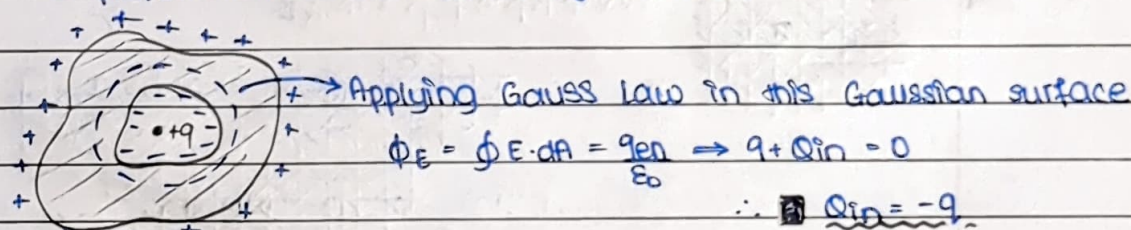 + + + + +
+ +
+ +
+ +
+ +
+ +
•+q
→ Applying Gauss Law in this Gaussian surface
ϕE = ∮E·dA = qen/ε0 ⇒ q + Qin = 0
∴ Qin = -q